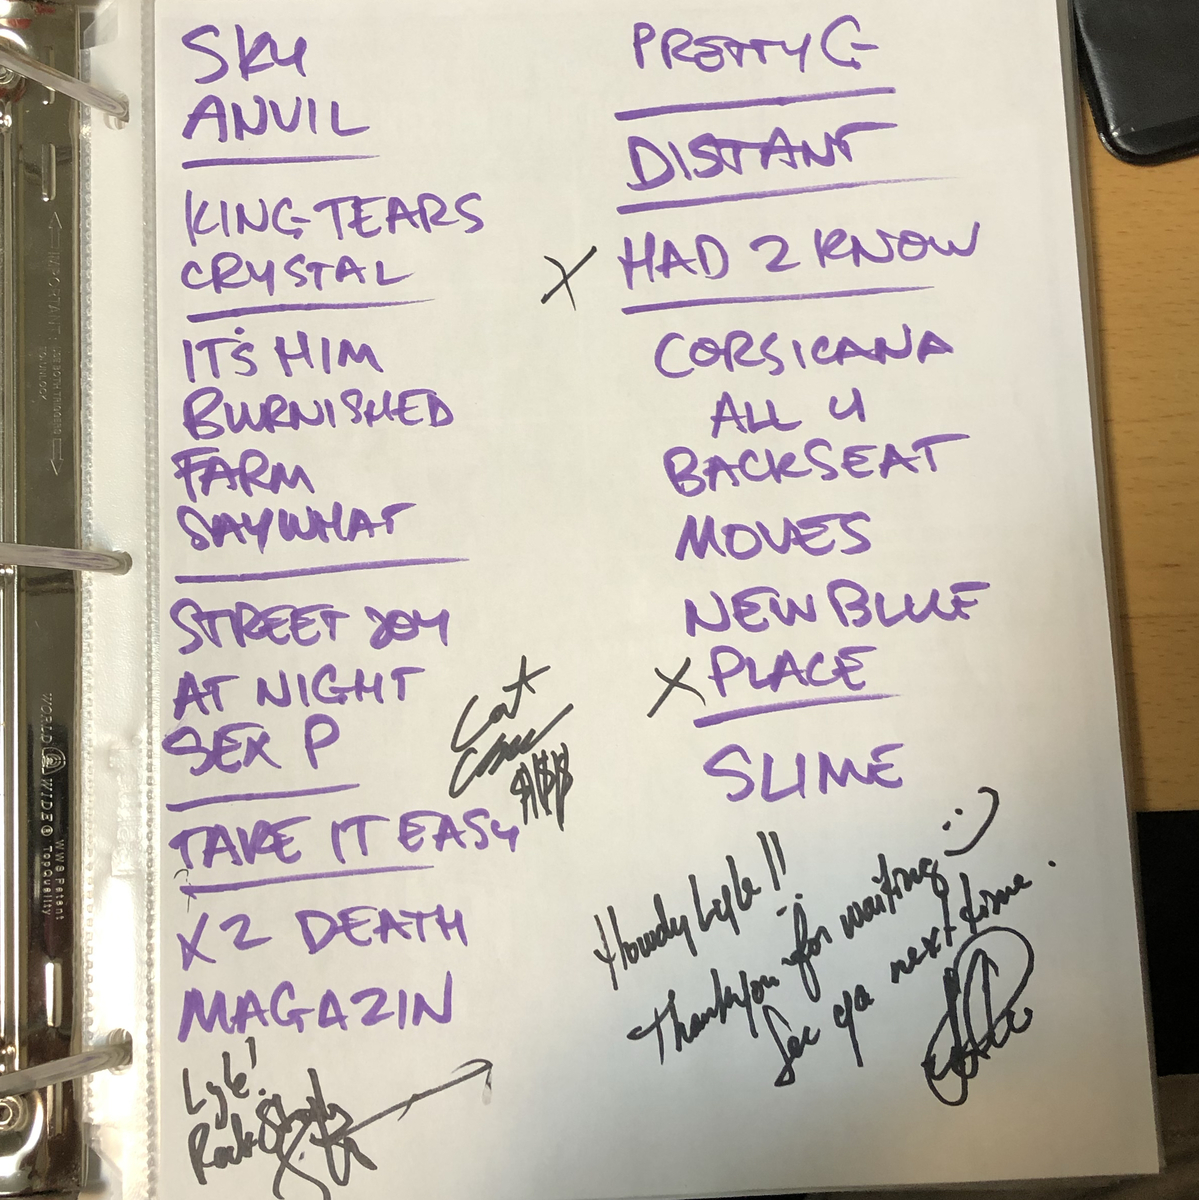 SKY
ANVIL
KING TEARS
CRYSTAL
IT'S HIM
BURNISHED
FARM
SAY WHAT
STREET JOY
AT NIGHT
SEX P
TAKE IT EASY
X2 DEATH
MAGAZIN
Lyle!
Rock
PRETTY G
DISTANT
X HAD 2 KNOW
CORSICANA
ALL U
BACKSEAT
MOVES
NEW BLUE
X PLACE
SLIME
Howdy Lyle!!
Thank you for waiting :)
See ya next time.
IMPORTANT:
WORLD WIDE
WWS Patent
TopQuality